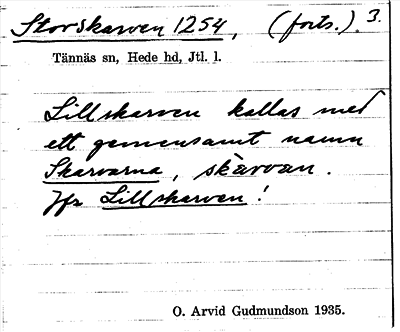 Storskarven 1254, (forts.). 3.
Tännäs sn, Hede hd, Jtl. l.
Lillskarven kallas med
ett gemensamt namn
Skarvarna, skàrvan.
Jfr Lillskarven!
O. Arvid Gudmundson 1935.